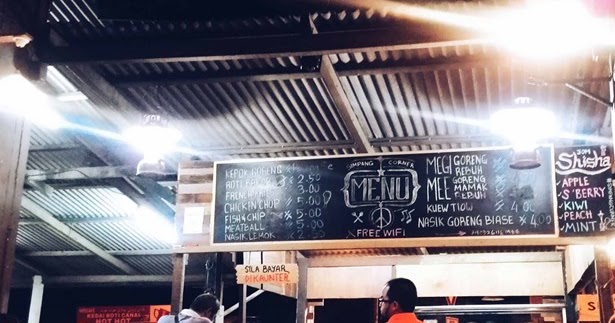 KEPOK GORENG
ROTI BAKAR 2.50
FRENCH FRIES 3.00
CHICKEN CHOP 5.00
FISH & CHIP 5.00
MEATBALL 5.00
NASIK LEMOK
CORNER
MENU
FREE WIFI
MEGI GORENG
REBUH
MEE GORENG
MAMAK
REBUH
KUEW TIOW 4.00
NASIK GOPENG BIASE 4.00
JOM
Shisha
APPLE
S'BERRY
KIWI
PEACH
MINT
SILA BAYAR
DIKAUNTER
KEDAI ROTI CANAI
HOT HOT
S